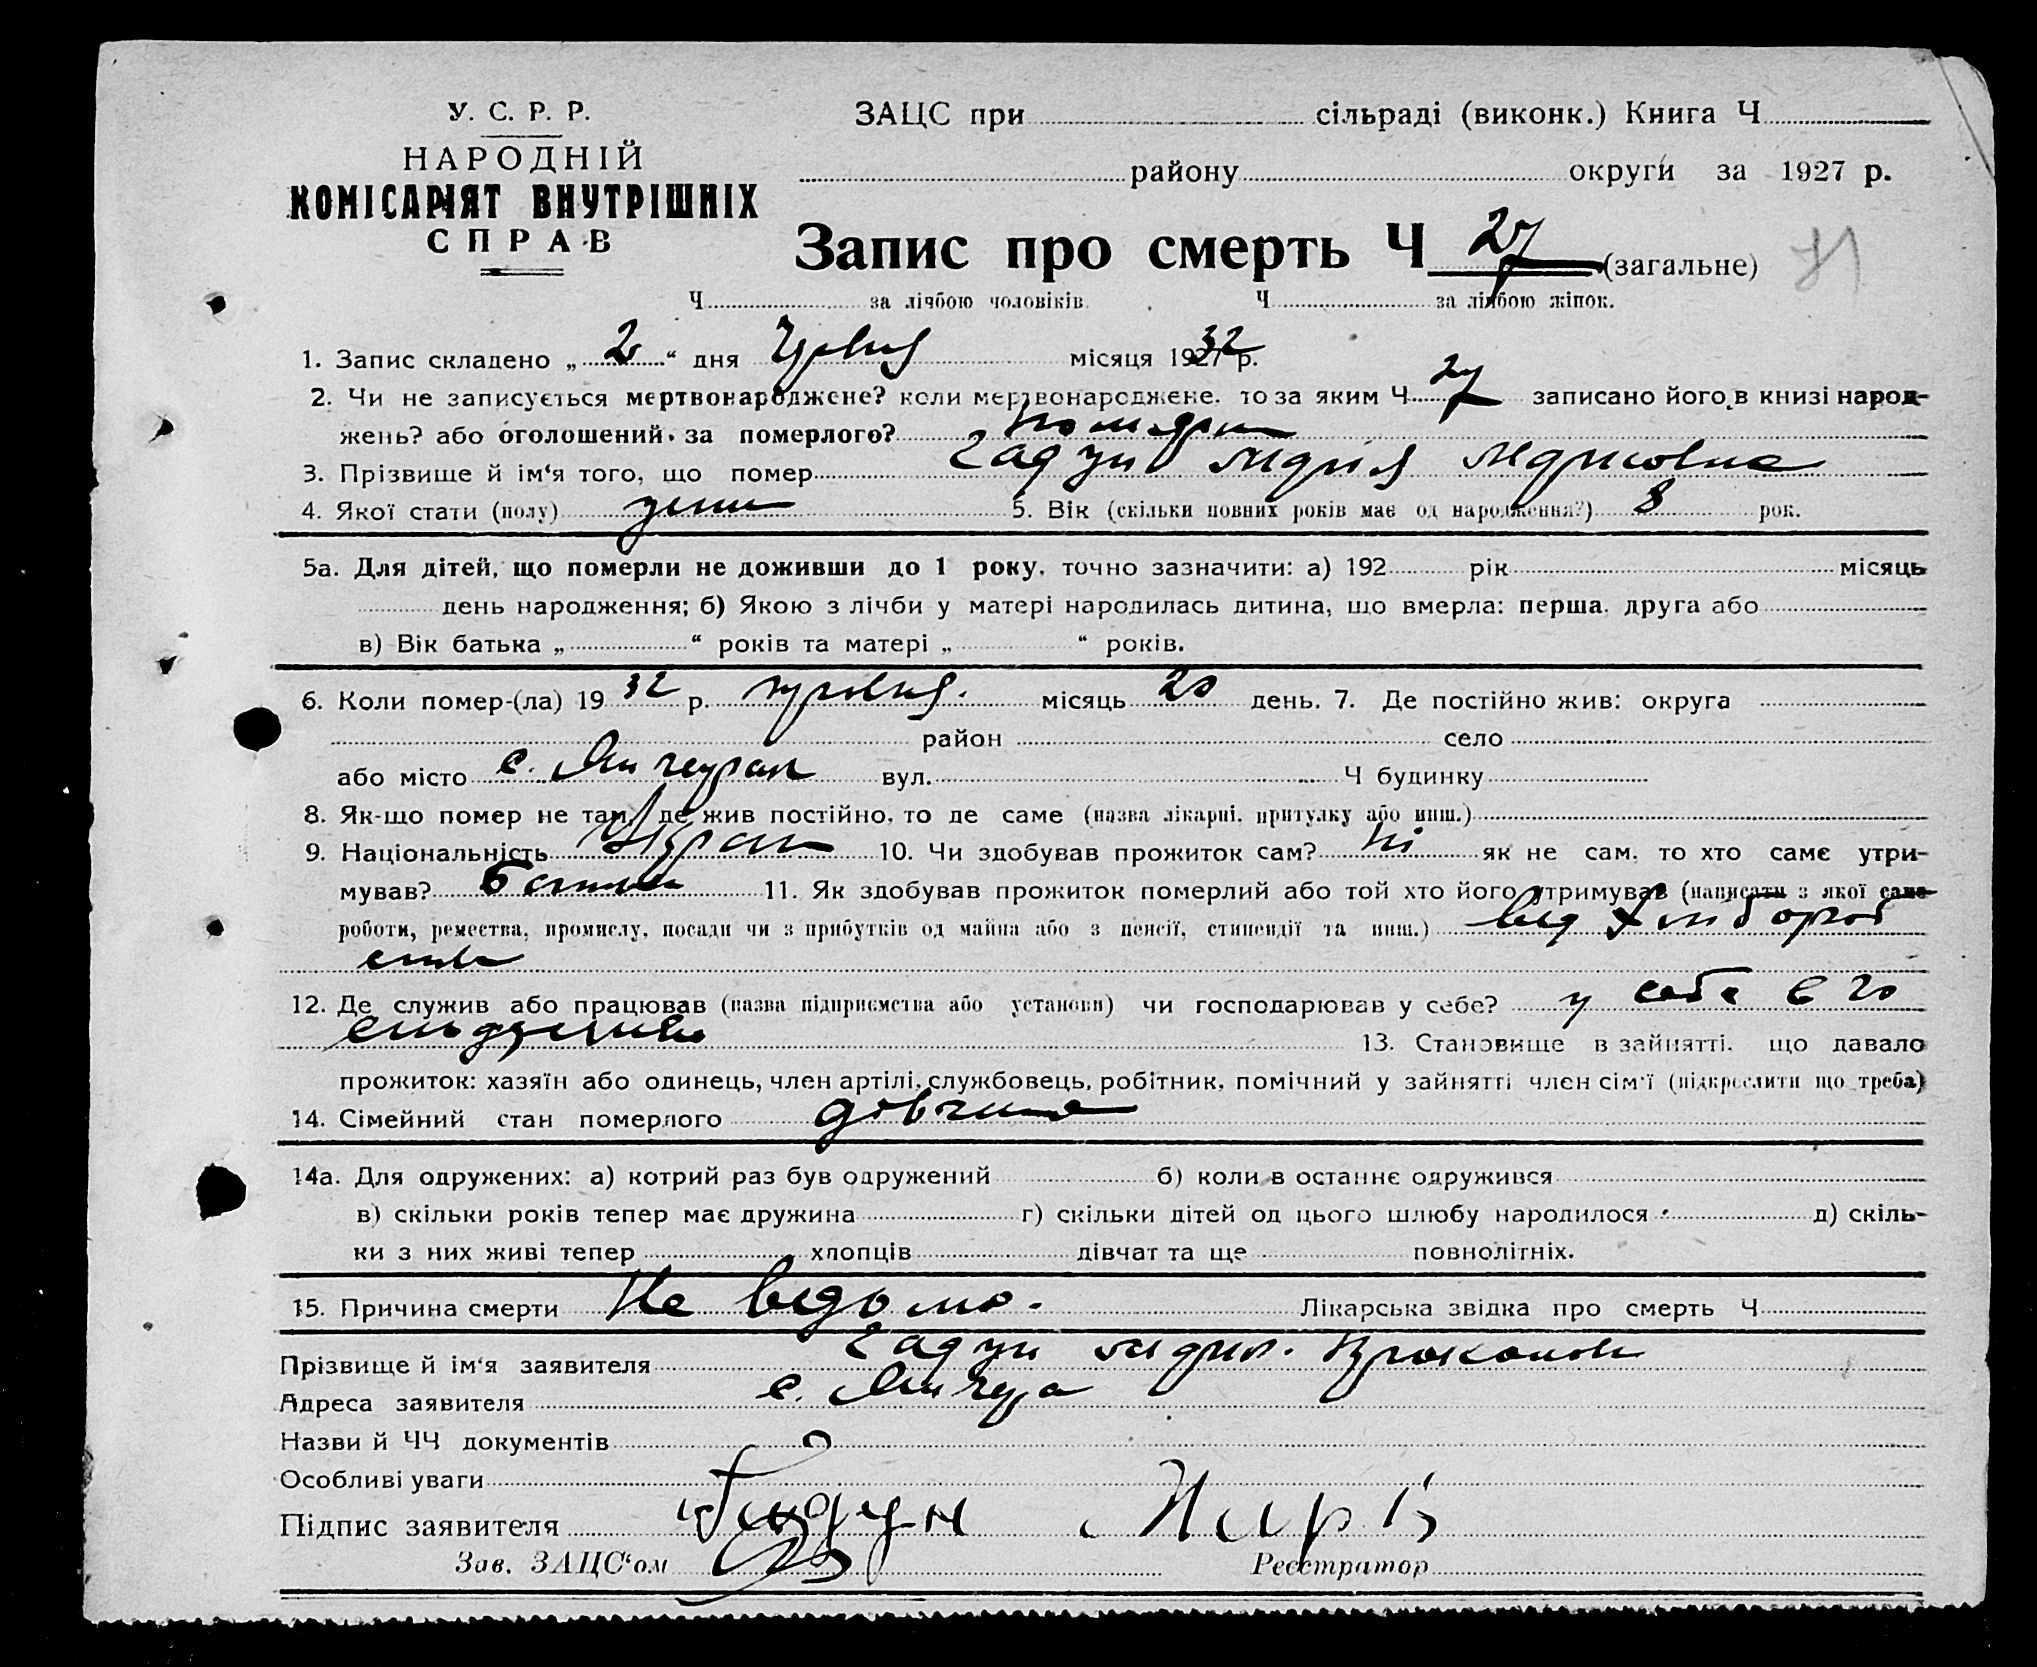 У. С. Р. Р.
НАРОДНІЙ
КОМІСАРІЯТ ВНУТРІШНІХ
СПРАВ
ЗАЦС при сільраді (виконк.) Книга Ч
району округи за 1927 р.
Запис про смерть Ч 27 (загальне)
71
Ч за лічбою чоловіків. Ч за лічбою жінок.
1. Запис складено „ " дня місяця 1927 32 р.
2. Чи не записується мертвонароджене? коли мертвонароджене, то за яким Ч 27 записано його в книзі народ-
жень? або оголошений за померлого?
3. Прізвище й ім'я того, що помер Гадун Марія
4. Якої стати (полу) жин 5. Вік (скільки повних років має од народження?) 8 рок.
5а. Для дітей, що померли не доживши до 1 року, точно зазначити: а) 192 рік місяць
день народження; б) Якою з лічби у матері народилась дитина, що вмерла: перша, друга або
в) Вік батька „ " років та матері „ " років.
6. Коли помер-(ла) 19 32 р. місяць 20 день. 7. Де постійно жив: округа
район село
або місто с. вул. Ч будинку
8. Як-що помер не там, де жив постійно, то де саме (назва лікарні, притулку або инш.)
9. Національність Украї 10. Чи здобував прожиток сам? Ні як не сам, то хто саме утри-
мував? Батько 11. Як здобував прожиток померлий або той хто його утримував (написати з якої саме
роботи, ремества, промислу, посади чи з прибутків од майна або з пенсії, стипендії та инш.) від хлібороб
ства
12. Де служив або працював (назва підприємства або установи) чи господарював у себе? у себе в го
сподарстві 13. Становище в зайнятті, що давало
прожиток: хазяїн або одинець, член артілі, службовець, робітник, помічний у зайнятті член сім'ї (підкреслити що треба)
14. Сімейний стан померлого дівчина
14а. Для одружених: а) котрий раз був одружений б) коли в останнє одружився
в) скільки років тепер має дружина г) скільки дітей од цього шлюбу народилося д) скіль-
ки з них живі тепер хлопців дівчат та ще повнолітніх.
15. Причина смерти Не ведомо. Лікарська звідка про смерть Ч
Прізвище й ім'я заявителя Гадун
Адреса заявителя с.
Назви й ЧЧ документів
Особливі уваги
Підпис заявителя Гадун Марія
Зав. ЗАЦС'ом Реєстратор